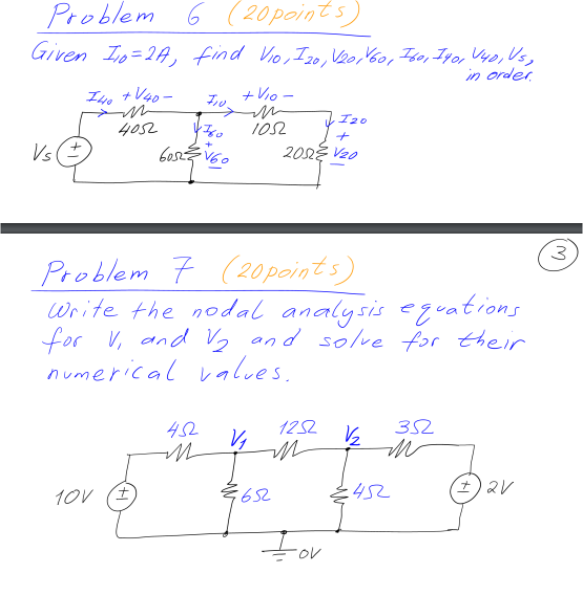 Problem 6 (20points)
Given I10=2A, find V10, I20, V20, V60, I60, I40, V40, Vs,
in order.
I40 +V40- I10 +V10-
40Ω I60 10Ω I20
Vs + 60Ω + V60 20Ω + V20
3
Problem 7 (20points)
Write the nodal analysis equations
for V1 and V2 and solve for their
numerical values.
4Ω V1 12Ω V2 3Ω
10V ± 6Ω 4Ω ± 2V
0V